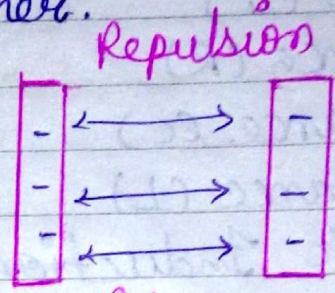 Repulsion
- -
- -
- -